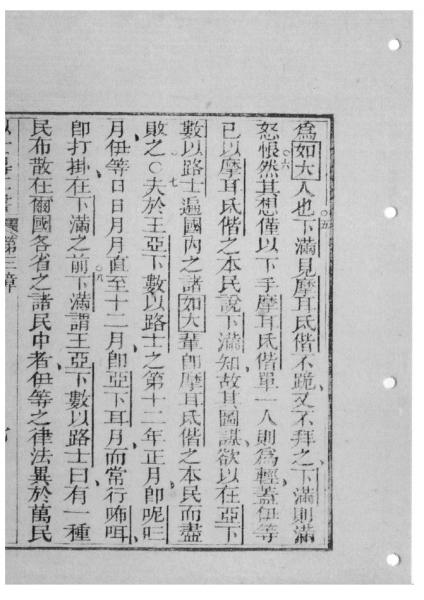 爲如大人也下滿見摩耳氐偕不跪又不拜之下滿則滿
怒悵然其想僅以下手摩耳氐偕單一人則爲輕蓋伊等
已以摩耳氐偕之本民說下滿知故其圖謀欲以在亞下
數以路士遍國內之諸如大輩卽摩耳氐偕之本民而盡
敗之○夫於王亞下數以路士之第十二年正月卽呢旺
月伊等日日月月直至十二月卽亞下耳月而常行咘咡
卽打掛在下滿之前下滿謂王亞下數以路士曰有一種
民布散在爾國各省之諸民中者伊等之律法異於萬民
第三章